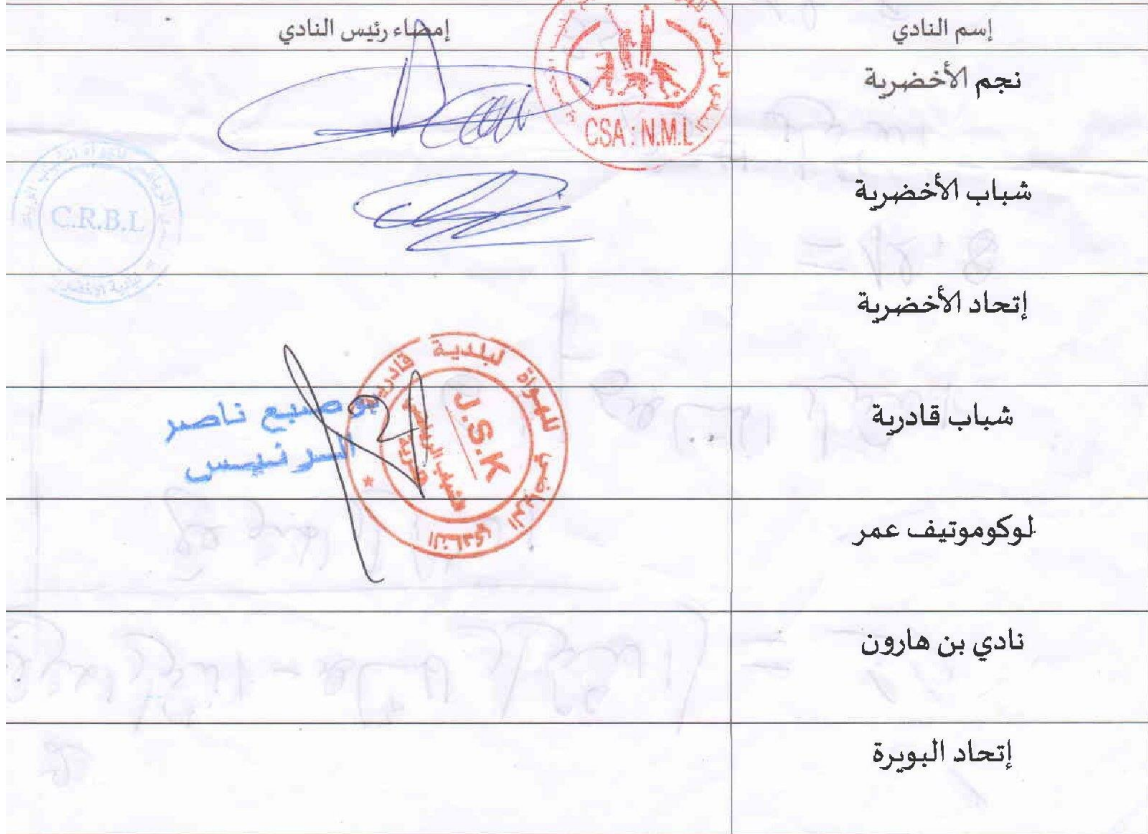 إسم النادي
إمضاء رئيس النادي
نجم الأخضرية
CSA : N.M.L
شباب الأخضرية
C.R.B.L
إتحاد الأخضرية
شباب قادرية
بوصبيع ناصر
الرئيس
النادي الرياضي للهواة لبلدية قادرية
J.S.K
لوكوموتيف عمر
نادي بن هارون
إتحاد البويرة